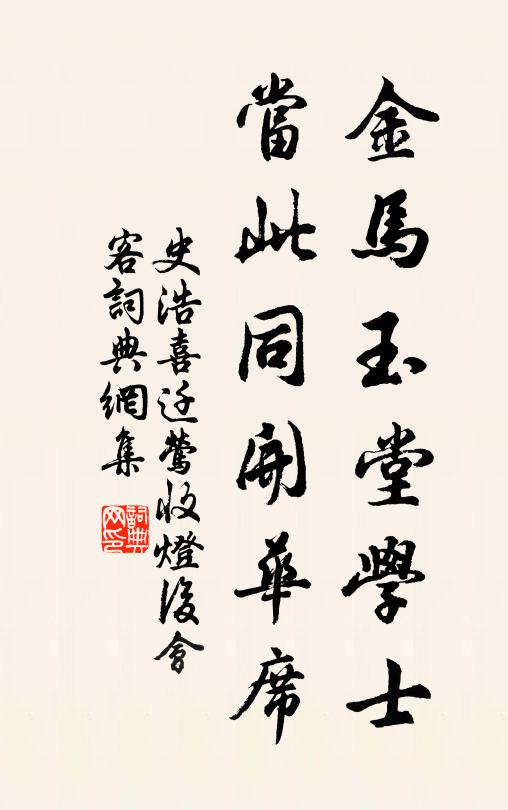 金馬玉堂學士
當此同開華席
史浩喜迁鶯收燈後會
客詞典網集
詞典
网印